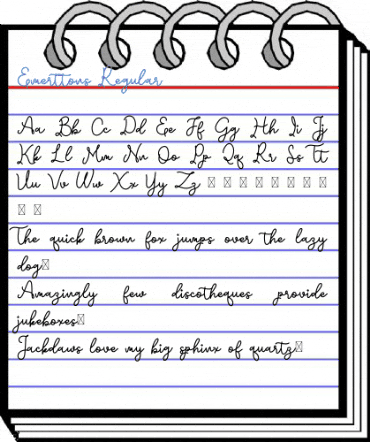 Emerttons Regular
Aa Bb Cc Dd Ee Ff Gg Hh Ii Jj
Kk Ll Mm Nn Oo Pp Qq Rr Ss Tt
Uu Vv Ww Xx Yy Zz
The quick brown fox jumps over the lazy
dog
Amazingly few discotheques provide
jukeboxes
Jackdaws love my big sphinx of quartz